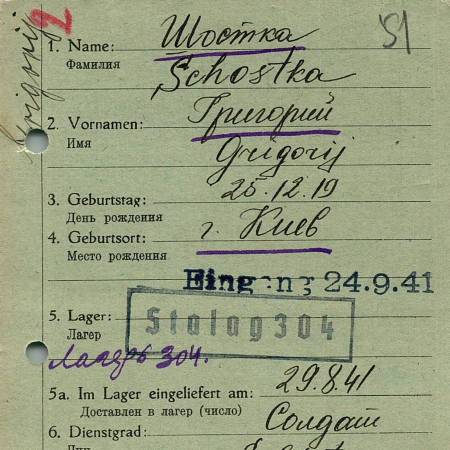 2
Grigorij
51
1. Name: Шостка
Фамилия
Schostka
2. Vornamen: Григорий
Имя
Grigorij
25.12.19
3. Geburtstag:
День рождения
4. Geburtsort: г. Киев
Место рождения
Eingang 24.9.41
5. Lager: Stalag 304
Лагерь
Лагерь 304.
5a. Im Lager eingeliefert am: 29.8.41
Доставлен в лагер (число)
6. Dienstgrad: Солдат